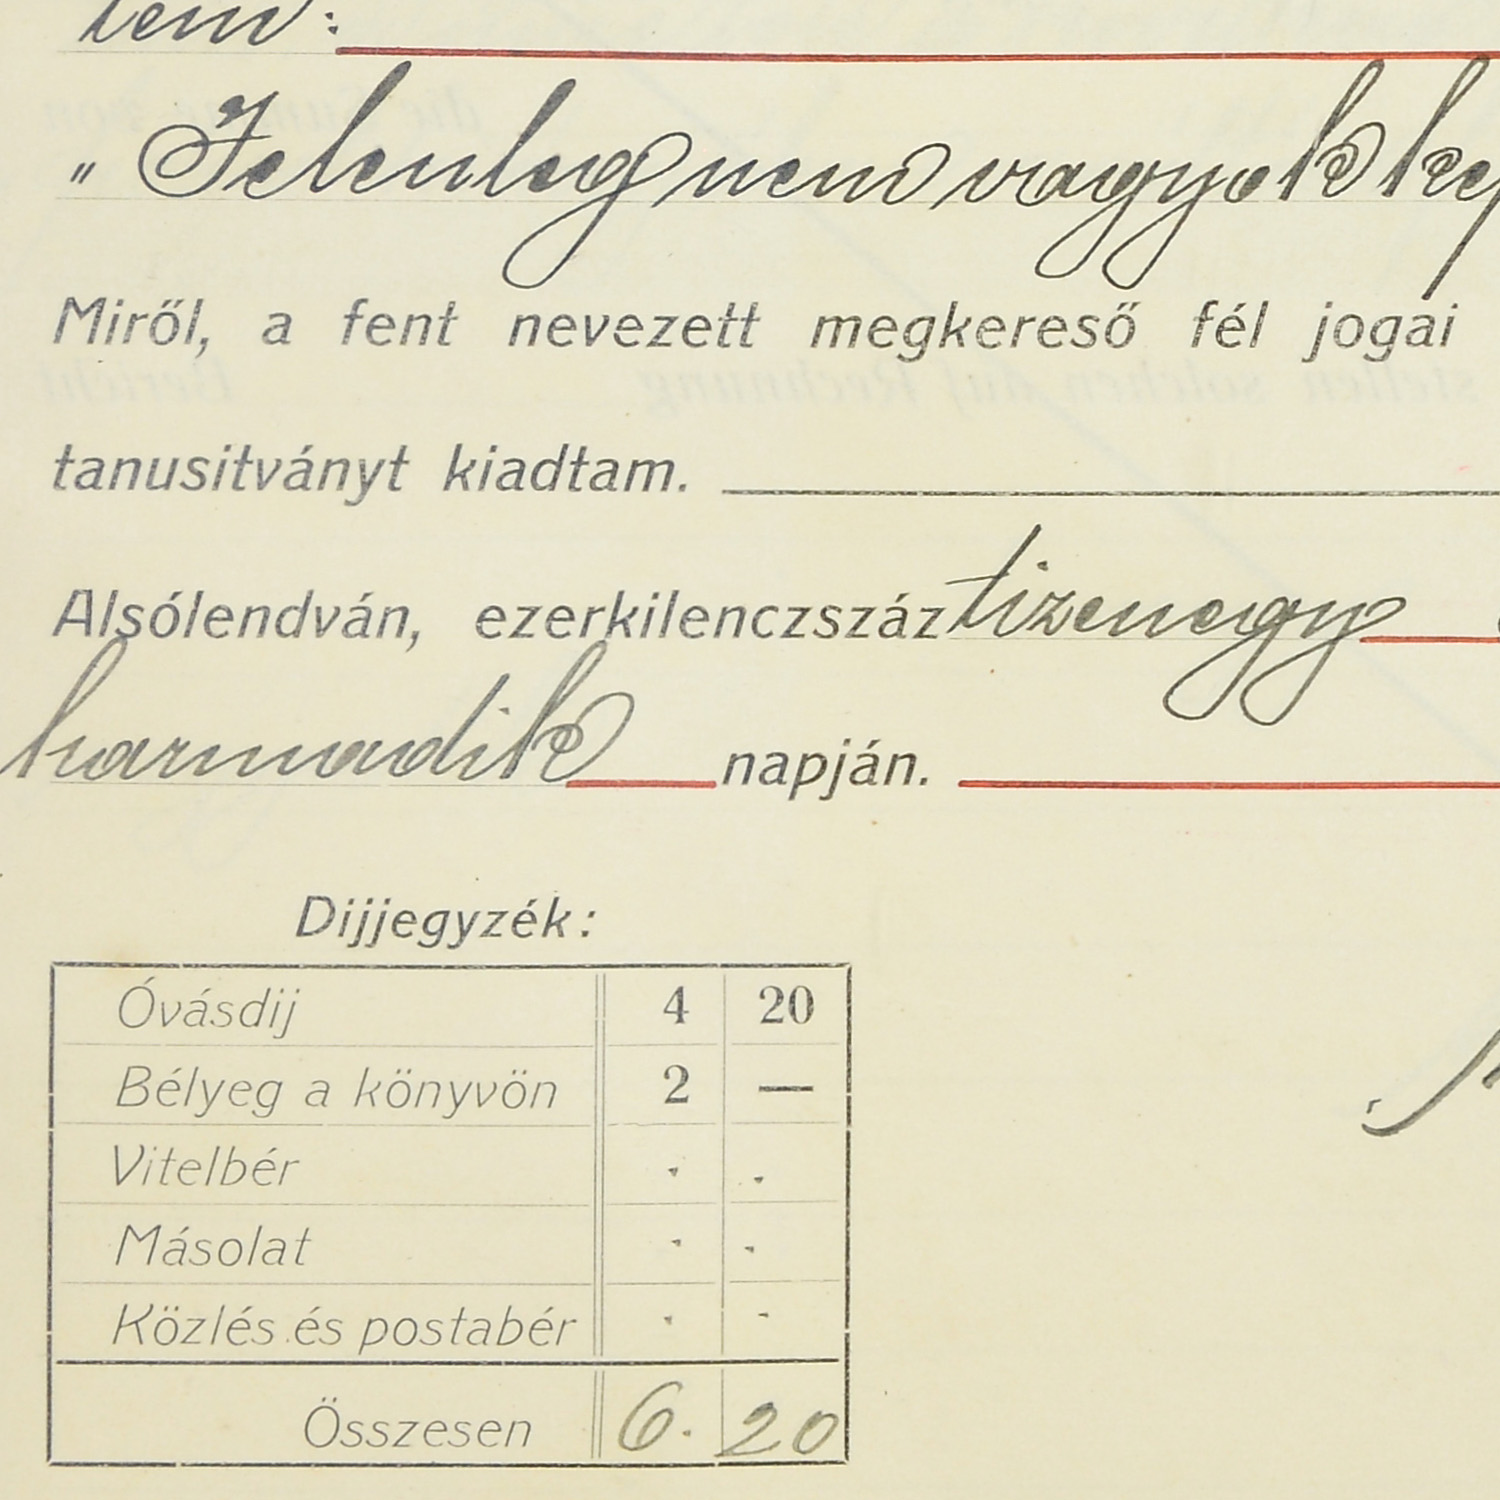 tem:
„Jelenleg nem vagyok kép
Miről, a fent nevezett megkereső fél jogai
tanusitványt kiadtam.
Alsólendván, ezerkilenczszáz tizenegy
harmadik napján.
Dijjegyzék:
Óvásdij 4 20
Bélyeg a könyvön 2 —
Vitelbér . .
Másolat . .
Közlés és postabér . .
Összesen 6. 20